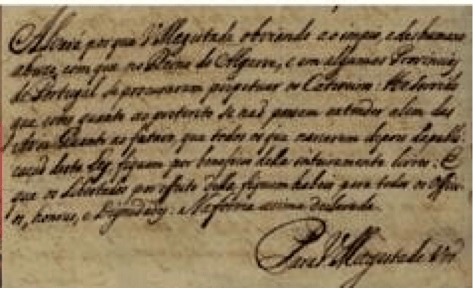 Alvará por que V Magestade obviando ao impio, e deshumano
abuzo, com que no Reino do Algarve, e em algumas Provincias
de Portugal se procuravam perpetuar os Cativeiros: He Servido
que estes quanto ao preterito se naõ possam extender alem dos
Avós: E quanto ao futuro que todos os que nascerem depois da publi
caçaõ desta Ley, fiquem por beneficio della inteiramente livres: E
que os libertados por effeito della, fiquem habeis para todos os Offici
os, honras, e Dignidades: Na forma assima declarada.
Para V Magestade ver